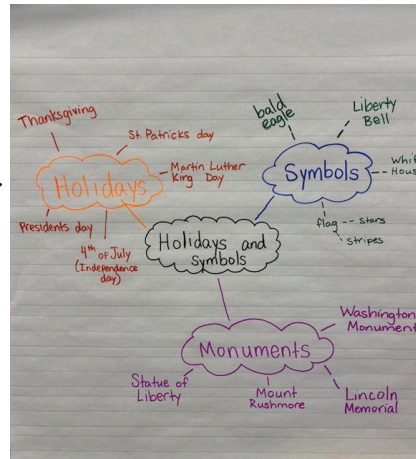 Thanksgiving
St. Patricks day
Martin Luther
King Day
Holidays
Presidents day
4th of July
(Independence
day)
bald
eagle
Liberty
Bell
Symbols
flag -- stars
stripes
Holidays and
symbols
Monuments
Washington
Monument
Statue of
Liberty
Mount
Rushmore
Lincoln
Memorial